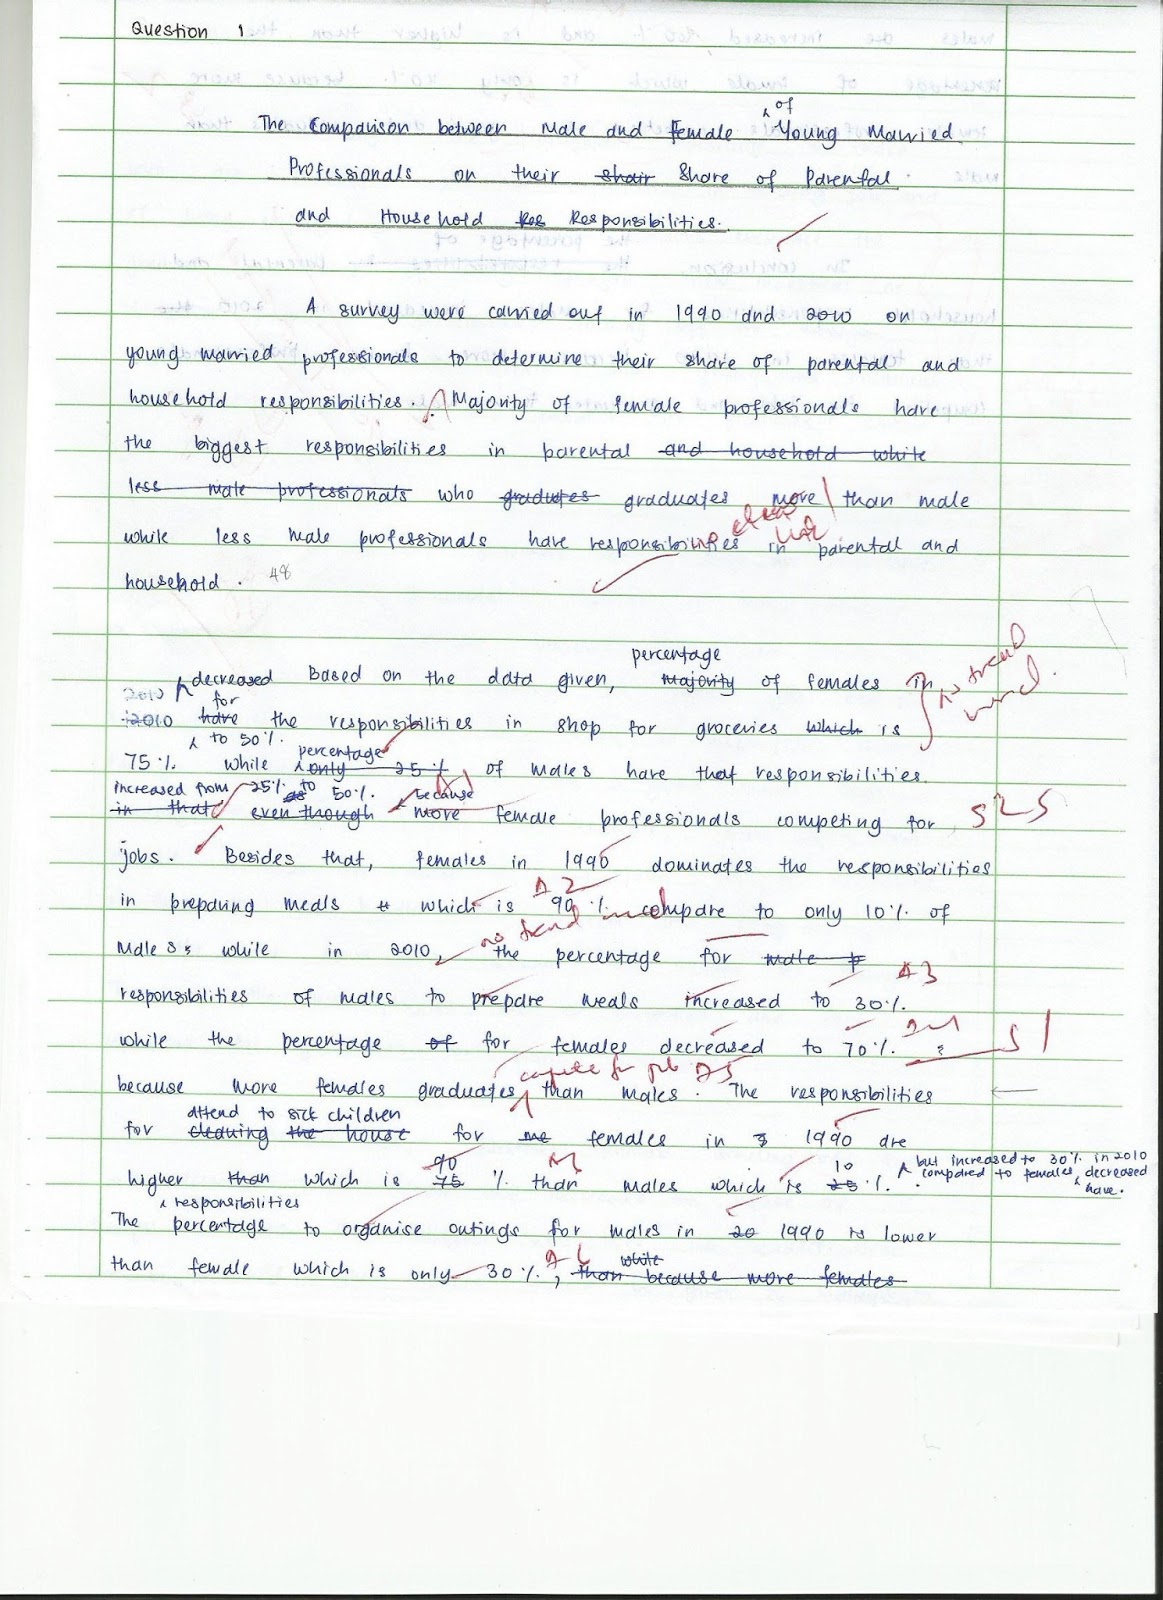 Question 1
of
The Comparison between Male and Female Young Married
Professionals on their shair Share of Parental
and Household Res Responsibilities.
A survey were carried out in 1990 and 2010 on
young married professionals to determine their share of parental and
household responsibilities. Majority of female professionals have
the biggest responsibilities in parental and household while
less male professionals who graduates graduates more than male
while less male professionals have responsibilities in parental and
household. 48
percentage
decreased Based on the data given, majority of females in
2010 for
2010 have the responsibilities in shop for groceries which is
to 50%. percentage
75% while only 25% of males have that responsibilities.
increased from 25% as to 50%. because
in that even though more female professionals competing for S2 5
jobs. Besides that, females in 1990 dominates the responsibilities
A2
in preparing meals which is 90% compare to only 10% of
no trend
males, while in 2010, the percentage for male
A3
responsibilities of males to prepare meals increased to 30%.
while the percentage of for females decreased to 70% S1
compete for job A5
because more females graduates than males. The responsibilities
attend to sick children
for cleaning the house for females in 1990 are
90 10 but increased to 30% in 2010
higher than which is 75% than males which is 25%. compared to females, decreased
have.
responsibilities
The percentage to organise outings for males in 20 1990 is lower
A6 while
than female which is only 30%, than because more females